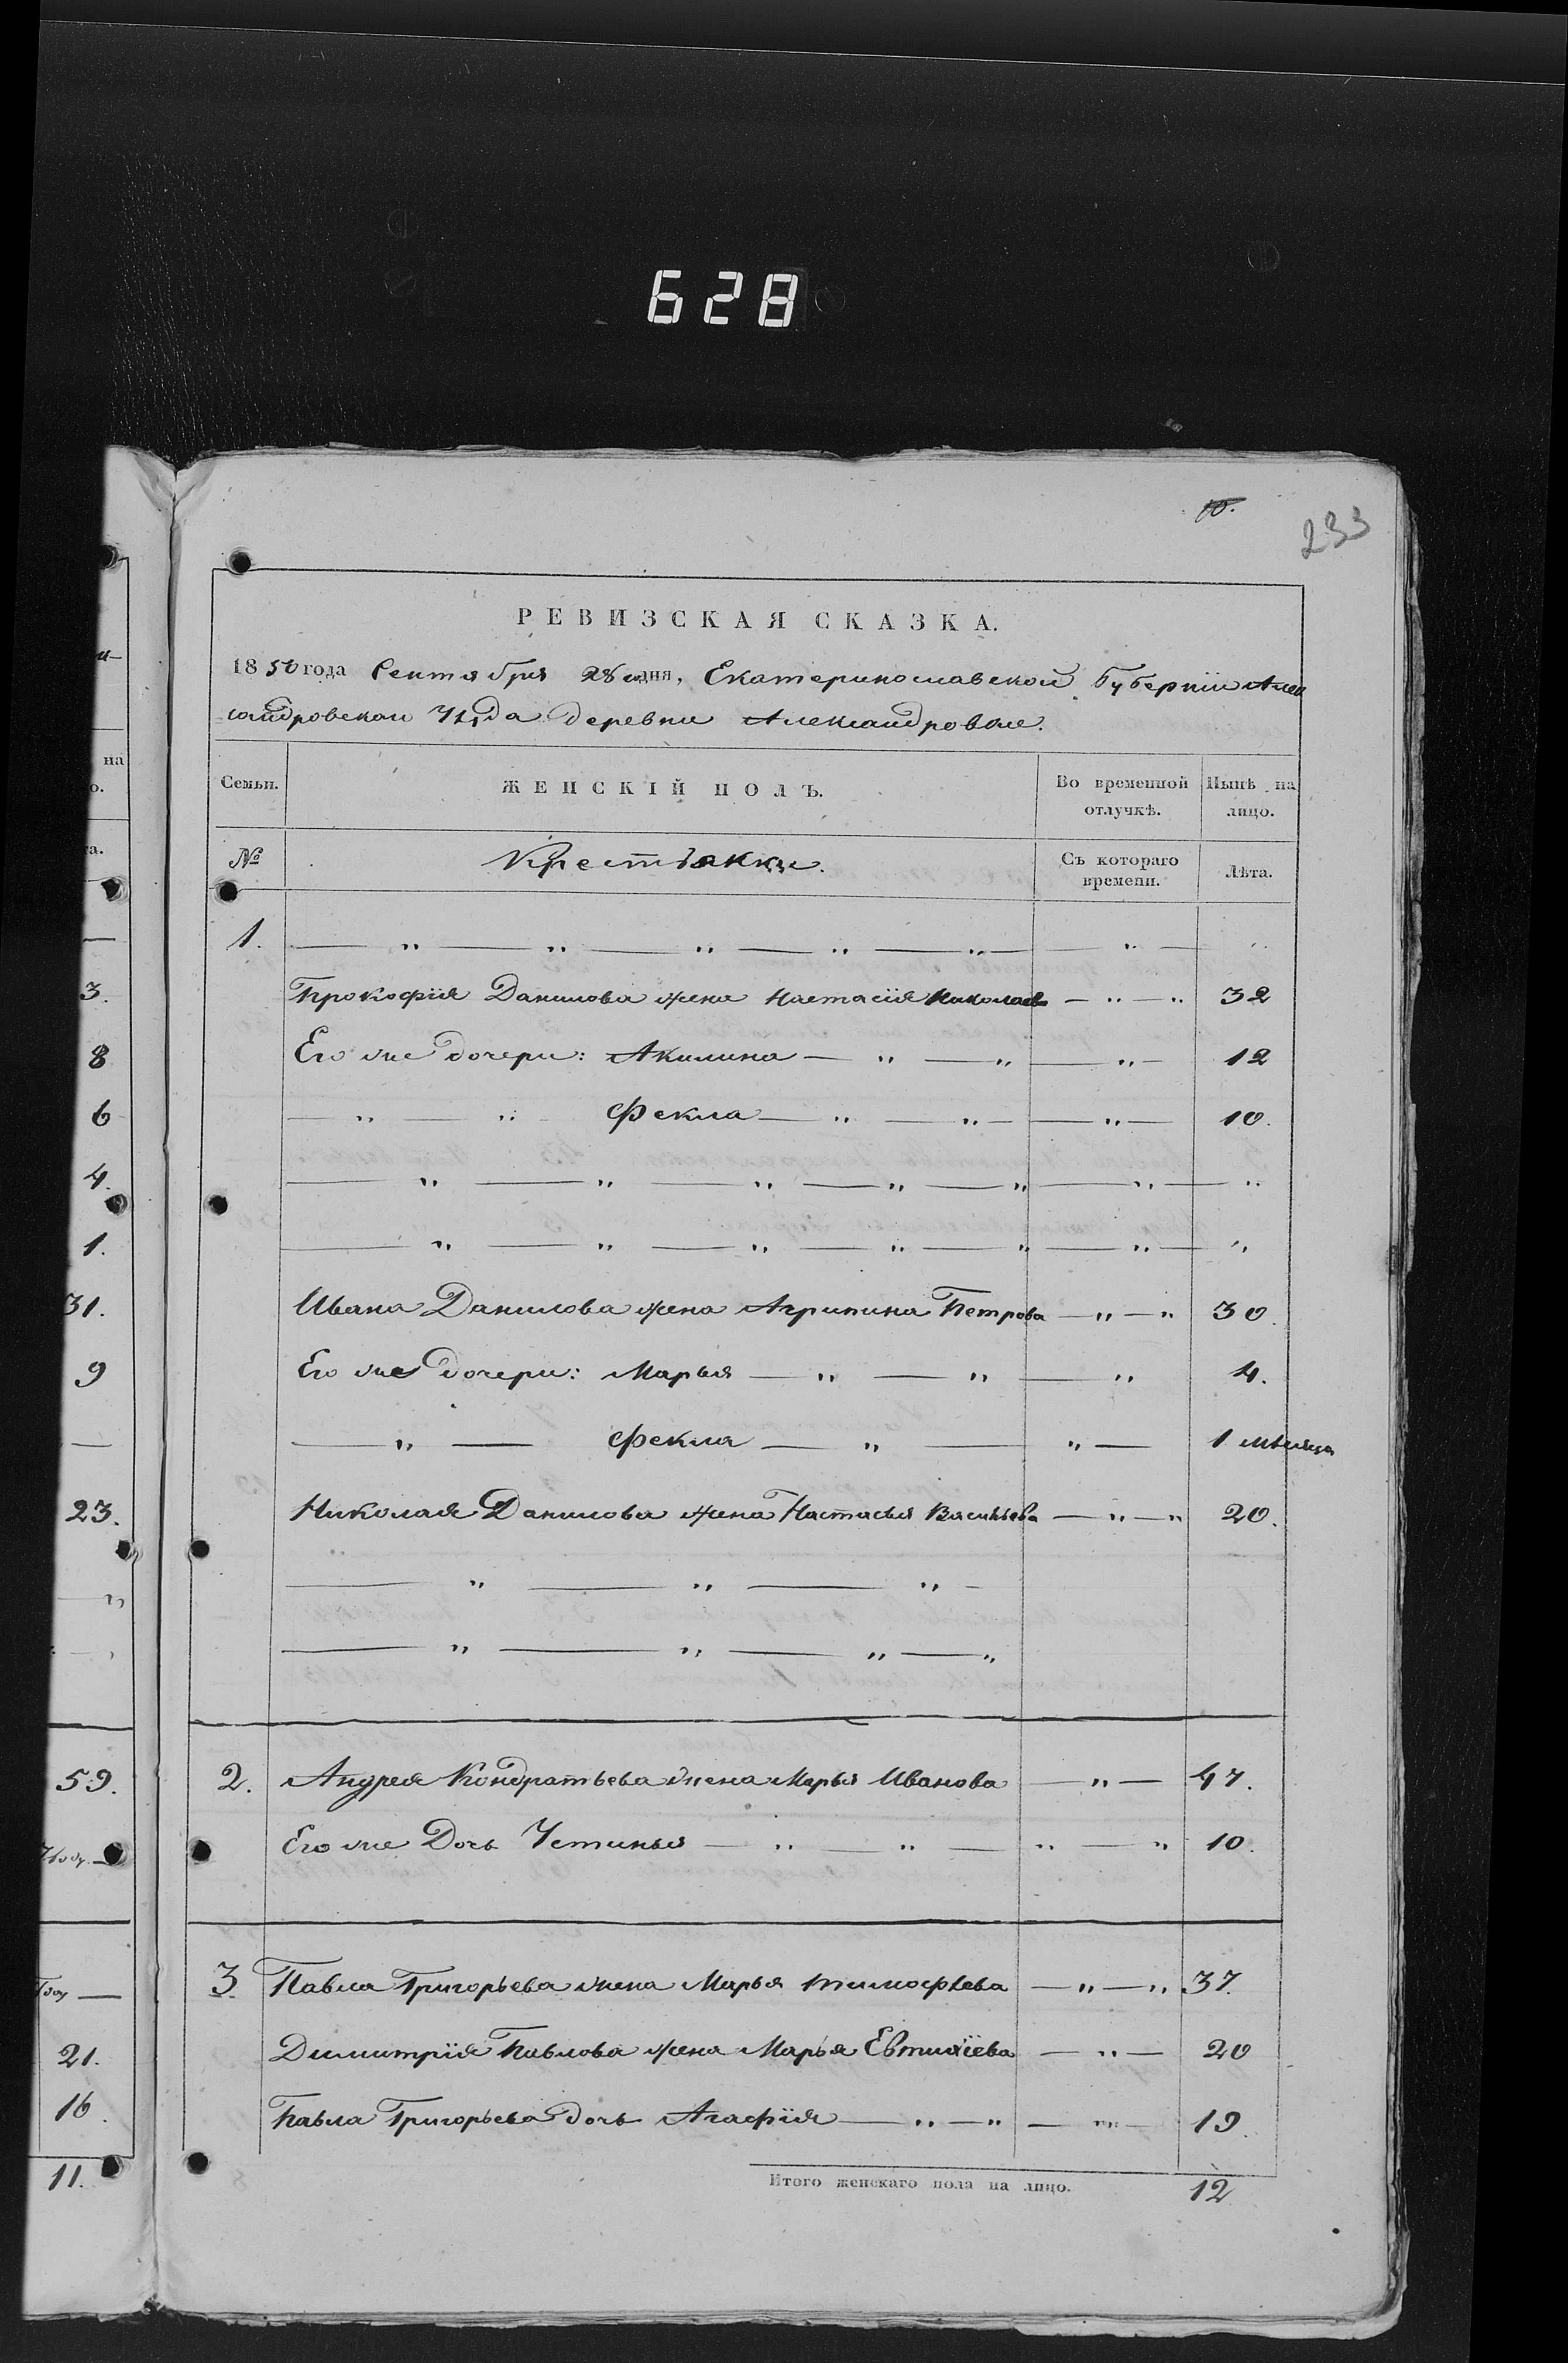 628
10.
233
РЕВИЗСКАЯ СКАЗКА.
1850 года Сентября 28 дня, Екатеринославской Губерніи Алек
сандровскаи Уѣзда деревни Александровки.
Семьи. ЖЕНСКІЙ ПОЛЪ. Во временной отлучкѣ. Нынѣ на лицо.
№ Крестьянки. Съ котораго времени. Лѣта.
1. — „ — „ — „ — „ — „ — „ — „
Прокофія Данилова жена Настасія Николаева — „ — „ 32
Его же дочери: Акилина — „ — „ — „ — 12
— „ — „ Фекла — „ — „ — „ — 10.
— „ — „ — „ — „ — „ — „ — „
— „ — „ — „ — „ — „ — „ — „
Ивана Данилова жена Агрипина Петрова — „ — „ 30.
Его же дочери: Марья — „ — „ — „ 4.
— „ — Фекла — „ — „ — 1 мѣсяца
Николая Данилова жена Настасья Васильева — „ — „ 20.
— „ — „ — „ —
— „ — „ — „ — „
2. Андрея Кондратьева жена Марья Иванова — „ — 47.
Его же Дочь Устинья — „ — „ — „ — „ 10.
3. Павла Григорьева жена Марья Тимофѣева — „ — „ 37.
Димитрія Павлова жена Марья Евтихіева — „ — 20
Павла Григорьева дочь Агафія — „ — „ — „ — 19.
Итого женскаго пола на лицо. 12
на
о.
а.
3.
8
6
4.
1.
31.
9
23.
59.
21.
16.
11.